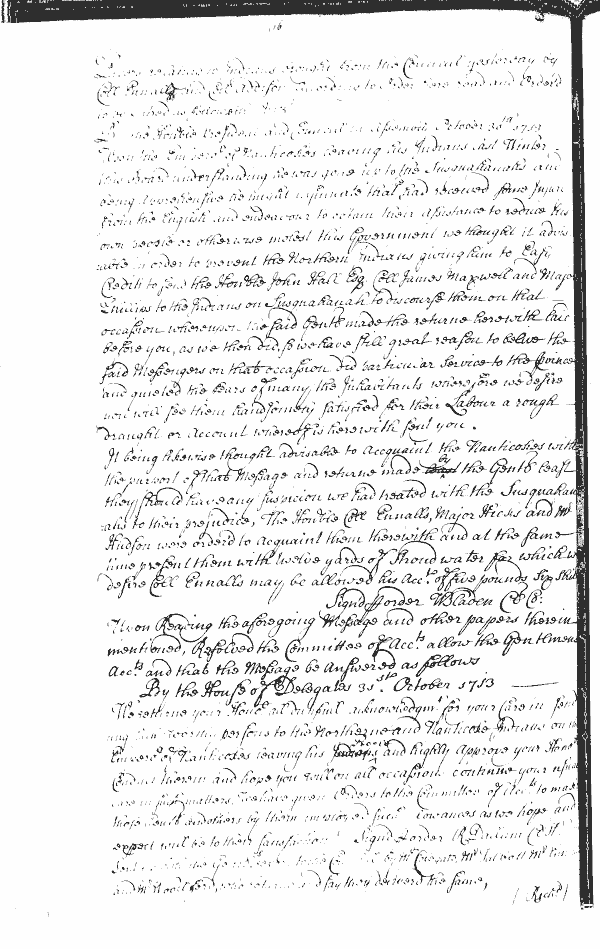 16
Papers relating to Indians brought from the Council yesterday by
Coll Ennalls and Coll Addison according to order were read and orderd
to be entred as followeth
By the Honble President and Council in Assembly October 30th 1713
Upon the Emperor of Nanticokes leaving his Indians last Winter
this Board understanding he was gone up to the Susquahanahs and
being apprehensive he might insinuate that he had received some Injury
from the English and endeavour to obtain their assistance to reduce his
own people or otherwise molest this Government we thought it advis
able in order to prevent the Northern Indians giving him to Easy
Creditt to send the Honble John Hall Esq Coll James Maxwell and Major
Phillips to the Indians on Susquahanah to discourse them on that
occassion whereupon the said Gents made the returne herewith laid
before you, as we then did, so we have still great reason to beleive the
said Messengers on that occassion did particular Service to the Province
and quieted the fears of many the Inhabitants wherefore we desire
you will see them handsomely satisfied for their Labour a rough
draught or Account whereof is herewith sent you.
It being likewise thought advisable to Acquaint the Nanticokes with
the purport of that Message and returne made by the Gents least
they should have any suspicion we had treated with the Susquahan
ahs to their prejudice, The Honble Coll Ennalls, Major Hicks and Mr
Hudson were orderd to acquaint them therewith and at the same
time present them with twelve yards of Stroud water for which we
desire Coll Ennalls may be allowed his Acct. of five pounds Six Shill
Signd p order W Bladen Cl Co:
Upon Reading the aforegoing Message and other papers therein
mentioned, Resolved the Committee of Accts allow the Gentlemens
Accts and that the Message be Answered as follows
By the House of Delegates 31st October 1713
We returne your Honrs all dutifull acknowledgmt for your Care in send
ing such worthy persons to the Northerne and Nanticoke Indians on the
Emperor of Nanticokes leaving his people and highly approve your Honrs
Conduct therein and hope you will on all occassions continue your usual
care in such matters, We have given Orders to the Committee of Acct to make
those Gents and others by them imployed such allowances as we hope and
expect will be to their satisfaction Signd p order R Dallam Cl H
and Mr Wood who returne and say they delivered the same,
(Rich